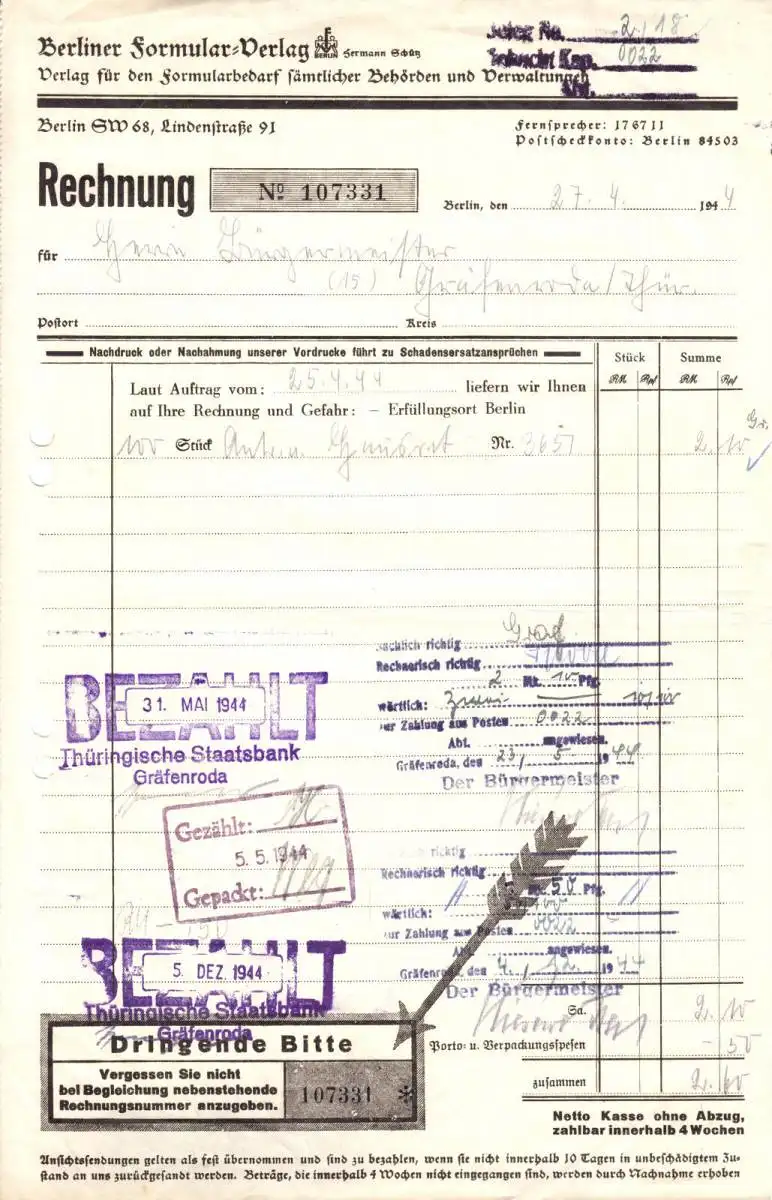 Berliner Formular-Verlag BERLIN Hermann Schütz
Verlag für den Formularbedarf sämtlicher Behörden und Verwaltungen
No. 2/18
Kap. 0022
Berlin SW 68, Lindenstraße 91
Fernsprecher: 17 67 11
Postscheckkonto: Berlin 84503
Rechnung
No 107331
Berlin, den 27. 4. 1944
für Herrn Bürgermeister
(15) Gräfenroda/Thür.
Postort Kreis
Nachdruck oder Nachahmung unserer Vordrucke führt zu Schadensersatzansprüchen
Stück Summe
RM Rpf RM Rpf
Laut Auftrag vom: 25.4.44 liefern wir Ihnen
auf Ihre Rechnung und Gefahr: – Erfüllungsort Berlin
100 Stück Nr. 3651 2.10
Sachlich richtig
Rechnerisch richtig
2 Mk. 10 Pfg.
wörtlich: Zwei
zur Zahlung aus Posten 0022
Abt. angewiesen.
Gräfenroda, den 23. 5. 1944
Der Bürgermeister
BEZAHLT
31. MAI 1944
Thüringische Staatsbank
Gräfenroda
Gezählt:
5.5.1944
Gepackt:
richtig
Rechnerisch richtig
Mk. 50 Pfg.
wörtlich:
zur Zahlung aus Posten 0022
Abt. angewiesen.
Gräfenroda, den 4. 12. 1944
Der Bürgermeister
BEZAHLT
5. DEZ. 1944
Thüringische Staatsbank
Gräfenroda
Sa. 2.10
Porto- u. Verpackungsspesen – 50
zusammen 2.60
Dringende Bitte
Vergessen Sie nicht
bei Begleichung nebenstehende
Rechnungsnummer anzugeben.
107331 *
Netto Kasse ohne Abzug,
zahlbar innerhalb 4 Wochen
Ansichtssendungen gelten als fest übernommen und sind zu bezahlen, wenn sie nicht innerhalb 10 Tagen in unbeschädigtem Zu-
stand an uns zurückgesandt werden. Beträge, die innerhalb 4 Wochen nicht eingegangen sind, werden durch Nachnahme erhoben